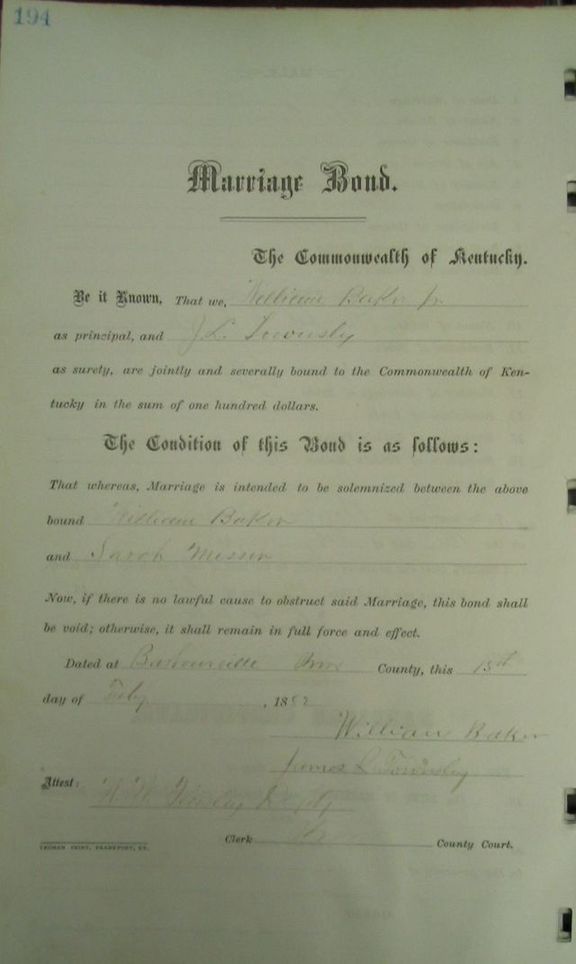 194
Marriage Bond.
The Commonwealth of Kentucky.
Be it Known, That we, William Baker Jr
as principal, and J L. Townsley
as surety, are jointly and severally bound to the Commonwealth of Ken-
tucky in the sum of one hundred dollars.
The Condition of this Bond is as follows:
That whereas, Marriage is intended to be solemnized between the above
bound William Baker
and Sarah Messer
Now, if there is no lawful cause to obstruct said Marriage, this bond shall
be void; otherwise, it shall remain in full force and effect.
Dated at Barbourville Knox County, this 15th
day of Feby, 18
William Baker
James L Townsley
Attest:
Clerk County Court.